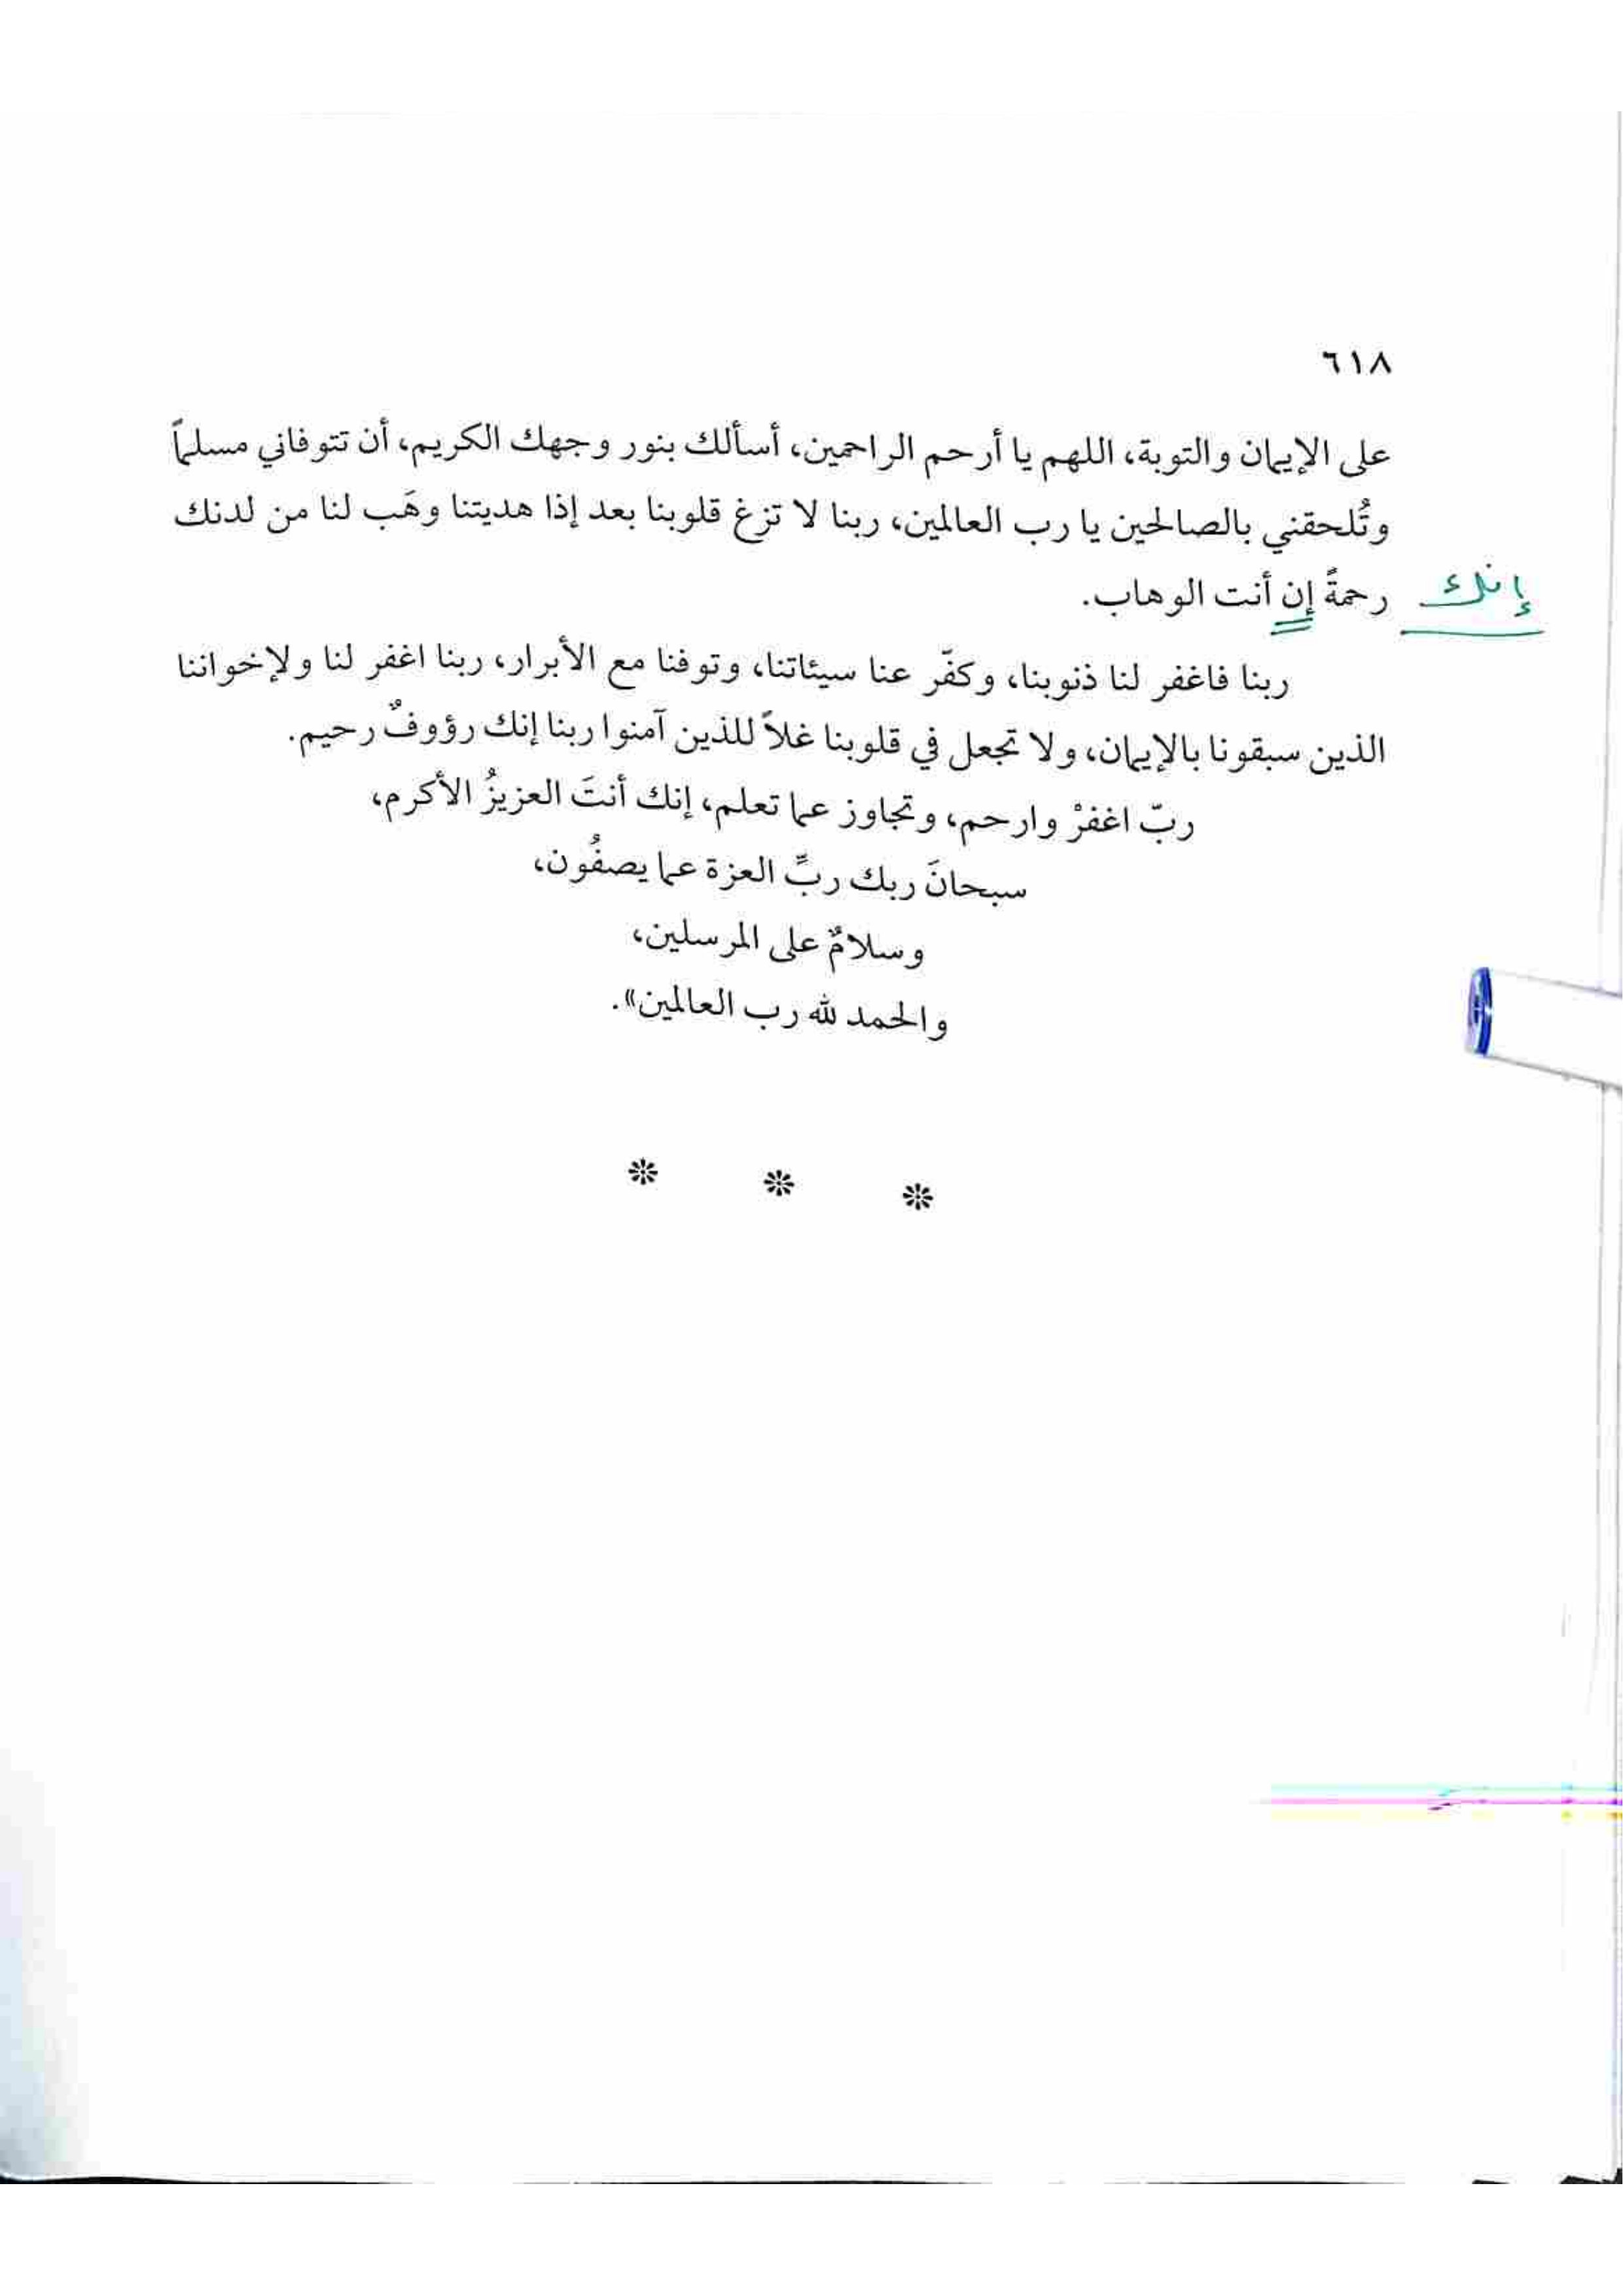 ٦١٨
على الإيمان والتوبة، اللهم يا أرحم الراحمين، أسألك بنور وجهك الكريم، أن تتوفاني مسلماً
وتُلحقني بالصالحين يا رب العالمين، ربنا لا تزغ قلوبنا بعد إذا هديتنا وهَب لنا من لدنك
رحمةً إن أنت الوهاب.
إنك
ربنا فاغفر لنا ذنوبنا، وكفّر عنا سيئاتنا، وتوفنا مع الأبرار، ربنا اغفر لنا ولإخواننا
الذين سبقونا بالإيمان، ولا تجعل في قلوبنا غلاً للذين آمنوا ربنا إنك رؤوفٌ رحيم.
ربّ اغفرْ وارحم، وتجاوز عما تعلم، إنك أنتَ العزيزُ الأكرم،
سبحانَ ربك ربِّ العزة عما يصفُون،
وسلامٌ على المرسلين،
والحمد لله رب العالمين».